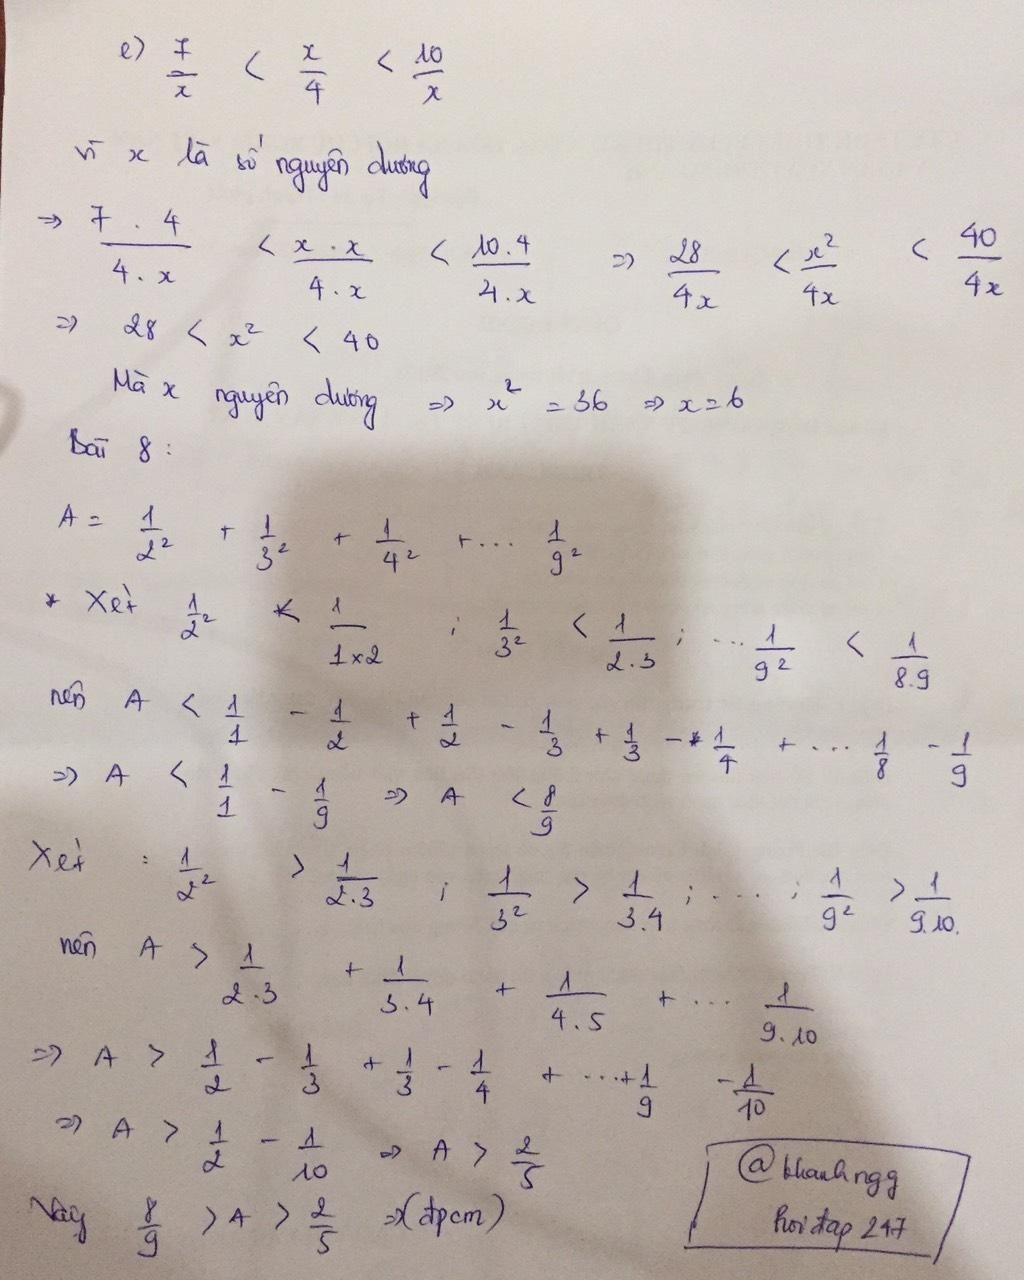 e) 7/x < x/4 < 10/x
Vì x là số nguyên dương
=> 7 . 4/4 . x < x . x/4 . x < 10 . 4/4 . x => 28/4x < x²/4x < 40/4x
=> 28 < x² < 40
Mà x nguyên dương => x² = 36 => x = 6
Bài 8 :
A = 1/2² + 1/3² + 1/4² + ... 1/9²
* Xét 1/2² < 1/1×2 ; 1/3² < 1/2.3 ; ... 1/9² < 1/8.9
nên A < 1/1 - 1/2 + 1/2 - 1/3 + 1/3 - 1/4 + ... 1/8 - 1/9
=> A < 1/1 - 1/9 => A < 8/9
Xét : 1/2² > 1/2.3 ; 1/3² > 1/3.4 ; .... ; 1/9² > 1/9.10.
nên A > 1/2.3 + 1/3.4 + 1/4.5 + ... 1/9.10
=> A > 1/2 - 1/3 + 1/3 - 1/4 + ...+ 1/9 - 1/10
=> A > 1/2 - 1/10 => A > 2/5
Vậy 8/9 > A > 2/5 => (đpcm)
@khanhngg
hoidap 247